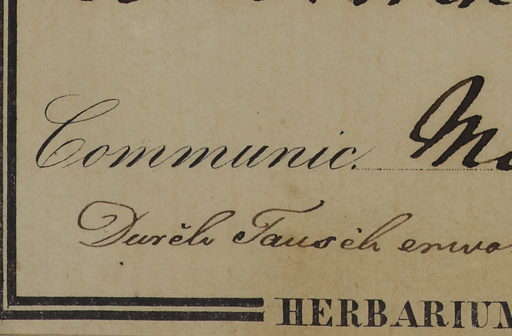 Communic. Mo
Durch Tausch erwo
HERBARIUM